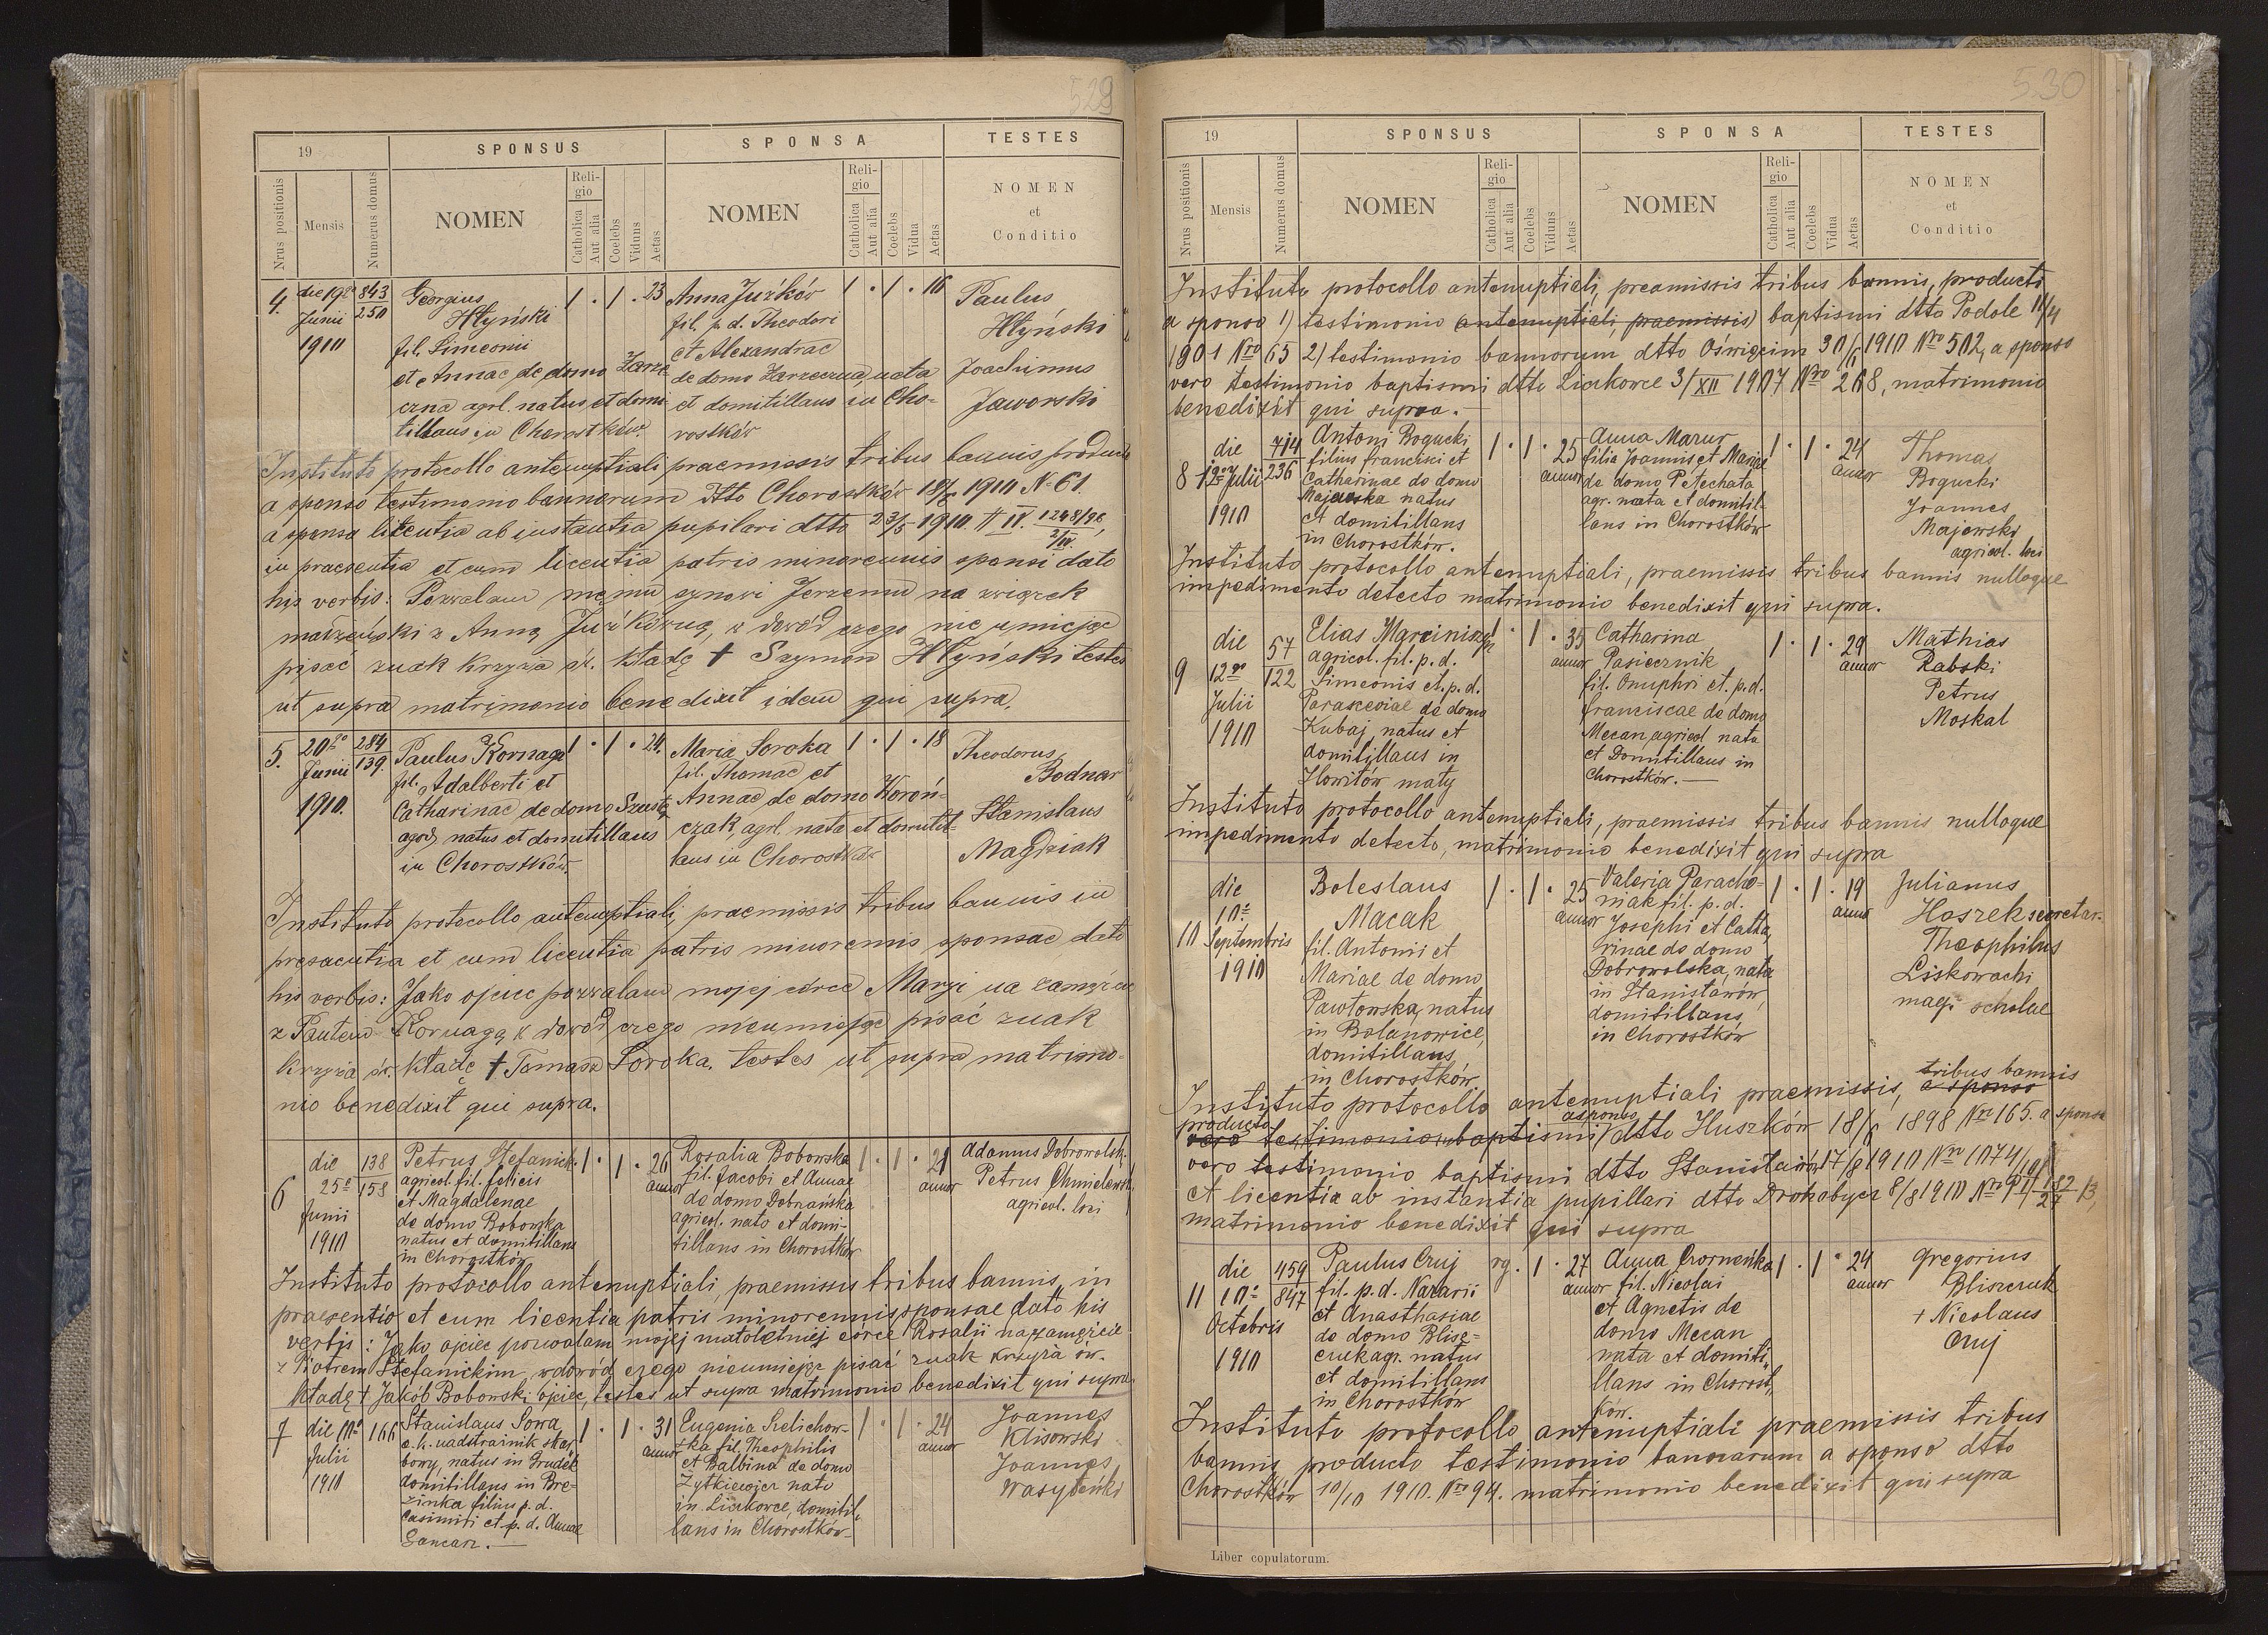 529
19
SPONSUS
SPONSA
TESTES
Nrus positionis
Mensis
Numerus domus
NOMEN
Religio
Catholica
Aut alia
Coelebs
Viduus
Aetas
NOMEN
Religio
Catholica
Aut alia
Coelebs
Vidua
Aetas
NOMEN
et
Conditio
4.
Junii
1910
843
250
Georgius
Hłyński
fil. Simeonii
et Annae de domo Zarze-
czna agrl. natus et domi-
tillans in Chorostków.
1 . 1 . 23
Anna Juźków
fil. p. d. Theodori
et Alexandrae
de domo Zarzeczna, nata
et domitillans in Cho-
rostków
1 . 1 . 16
Paulus
Hłyński
Joachimus
Jaworski
Instituto protocollo antenuptiali praemissis tribus bannis producto
a sponso testimonio bannorum dtto Chorostków 18/6 1910 N 61.
a sponsa licentia ab instantia pupilari dtto 23/5 1910
in praesentia et cum licentia patris minorennis sponsi dato
his verbis: Pozwalam mojmu synowi Jerzemu na związek
małżeński z Anną Juźkówną, w dowód czego nie umiejąc
pisać znak krzyża św. kładę + Szymon Hłyński testes
ut supra matrimonio benedixit idem qui supra.
5.
20
Junii
1910.
284
139.
Paulus Kornaga
fil. Adalberti et
Catharinae de domo
natus et domitillans
in Chorostków.
1 . 1 . 24.
Maria Soroka
fil. Thomae et
Annae de domo Woroń-
czak, agrl. nata et domitil-
lans in Chorostków
1 . 1 . 18
Theodorus
Bodnar
Stanislaus
Magdziak
Instituto protocollo antenuptiali, praemissis tribus bannis in
presaentia et cum licentia patris minorenis sponsae dato
his verbis: Jako ojciec pozwalam mojej córce Maryi na zamęście
z Pawłem Kornagą w dowód czego nieumiejąc pisać znak
krzyża św. kładę + Tomasz Soroka. testes ut supra matrimo-
nio benedixit qui supra.
6
die
25
Junii
1910
138
158
Petrus Stefanicki
agricol. fil. felicis
et Magdalenae
de domo Bobowska
natus et domitillans
in Chorostków
1 . 1 . 26
annor
Rosalia Bobowska
fil. Jacobi et Annae
de domo
agricol. nato et domi-
tillans in Chorostków
1 . 1 . 21
annor
Adamus Dobrowolsk.
Petrus Chmielewsk.
agricol. loci
Instituto protocollo antenuptiali, praemissis tribus bannis, in
praesentio et cum licentia patris minorennis sponsae dato his
verbis: Jako ojciec pozwalam mojej małoletniej córce Rosalii na zamęście
z Piotrem Stefanickim, w dowód czego nieumiejąc pisać znak krzyża św.
kładę + Jakób Bobowski ojciec, testes ut supra matrimonio benedixit qui supra.
7
die
Julii
1910
166
Stanislaus Sowa
c. k. nadstrażnik skar-
bowy, natus in Gródek
domitillans in Bre-
zinka filius p. d.
Casimiri et p. d. Annae
1 . 1 . 31
annor
Eugenia Sielichow-
ska fil. Theophilis
et Balbina de domo
Żytkiewicz nato
in Liczkowce, domitil-
lans in Chorostków
1 . 1 . 24
annor
Joannes
Klisowski
Joannes
530
19
SPONSUS
SPONSA
TESTES
Nrus positionis
Mensis
Numerus domus
NOMEN
Religio
Catholica
Aut alia
Coelebs
Viduus
Aetas
NOMEN
Religio
Catholica
Aut alia
Coelebs
Vidua
Aetas
NOMEN
et
Conditio
Instituto protocollo antenuptiali, preamissis tribus bannis, producto
a sponso 1) testimonio antenuptiali, praemissis) baptismi dtto Podole 11/4
1901 Nro 65 2) testimonio bannorum dtto Oświęcim 30/6 1910 Nro 502, a sponso
vero testimonio baptismi dtto Liczkowce 3/XII 1907 Nro 268, matrimonio
benedixit qui supra.
8
die
12 Julii
1910
714
236
Antoni Bogucki
filius francisci et
Catharinae de domo
Majewska natus
et domitillans
in Chorostków.
1 . 1 . 25
annor
Anna Mazur
filia Joannis et Mariae
de domo Petechata
agr. nata et domitil-
lans in Chorostków
1 . 1 . 24
annor
Thomas
Bogucki
Joannes
Majewski
agricol. loci
Instituto protocollo antenuptiali, praemissis tribus bannis nulloque
impedimento detecto matrimonio benedixit qui supra.
9
die
12
Julii
1910
57
122
Elias Marciniszyn
agricol. fil. p. d.
Simeonis et. p. d.
Parasceviae de domo
Kubaj, natus et
domitillans in
Howiłów mały
1 . 1 . 35
annor
Catharina
Pasiecznik
fil. Onuphri et. p. d.
franciscae de domo
Mecan, agricol nata
et Domitillans in
Chorostków.
1 . 1 . 29
annor
Mathias
Rabski
Petrus
Moskal
Instituto protocollo antenuptiali, praemissis tribus bannis nulloque
impedimento detecto, matrimonio benedixit qui supra
10
die
10
Septembris
1910
Boleslaus
Macak
fil. Antonii et
Mariae de domo
Pawłowska, natus
in Bolanowice,
domitillans
in Chorostków
1 . 1 . 25
annor
Valeria Paracho-
niak fil. p. d.
Josephi et Catha-
rinae de domo
Dobrowolska, nata
in Stanisławów,
domitillans
in Chorostków
1 . 1 . 19
annor
Julianus
Haszek secretar.
Theophilus
Liskowacki
magi scholae
Instituto protocollo antenuptiali praemissis, tribus bannis
a sponso
producto
vero testimonio baptismi a sponso dtto Huszków 18/6 1898 Nro 165. a sponsa
vero testimonio baptismi dtto Stanisławów 17/8 1910 Nro 1074/10
et licentia ab instantia pupillari dtto Drohobycz 8/8 1910 Nro
matrimonio benedixit qui supra
11
die
10
Octobris
1910
459
847
Paulus Cruj
fil. p. d. Nazarii
et Anasthasiae
de domo Blisz-
czuk agr. natus
et domitillans
in Chorostków
rg. 1 . 27
annor
Anna Czorneńka
fil. Nicolai
et Agnetis de
domo Mecan
nata et domiti-
llans in Chorost-
ków.
1 . 1 . 24
annor
Gregorius
Bliszczuk
+ Nicolaus
Cruj
Instituto protocollo antenuptiali praemissis tribus
bannis, producto testimonio bannorum a sponso dtto
Chorostków 10/10 1910. Nro 94. matrimonio benedixit qui supra
Liber copulatorum.